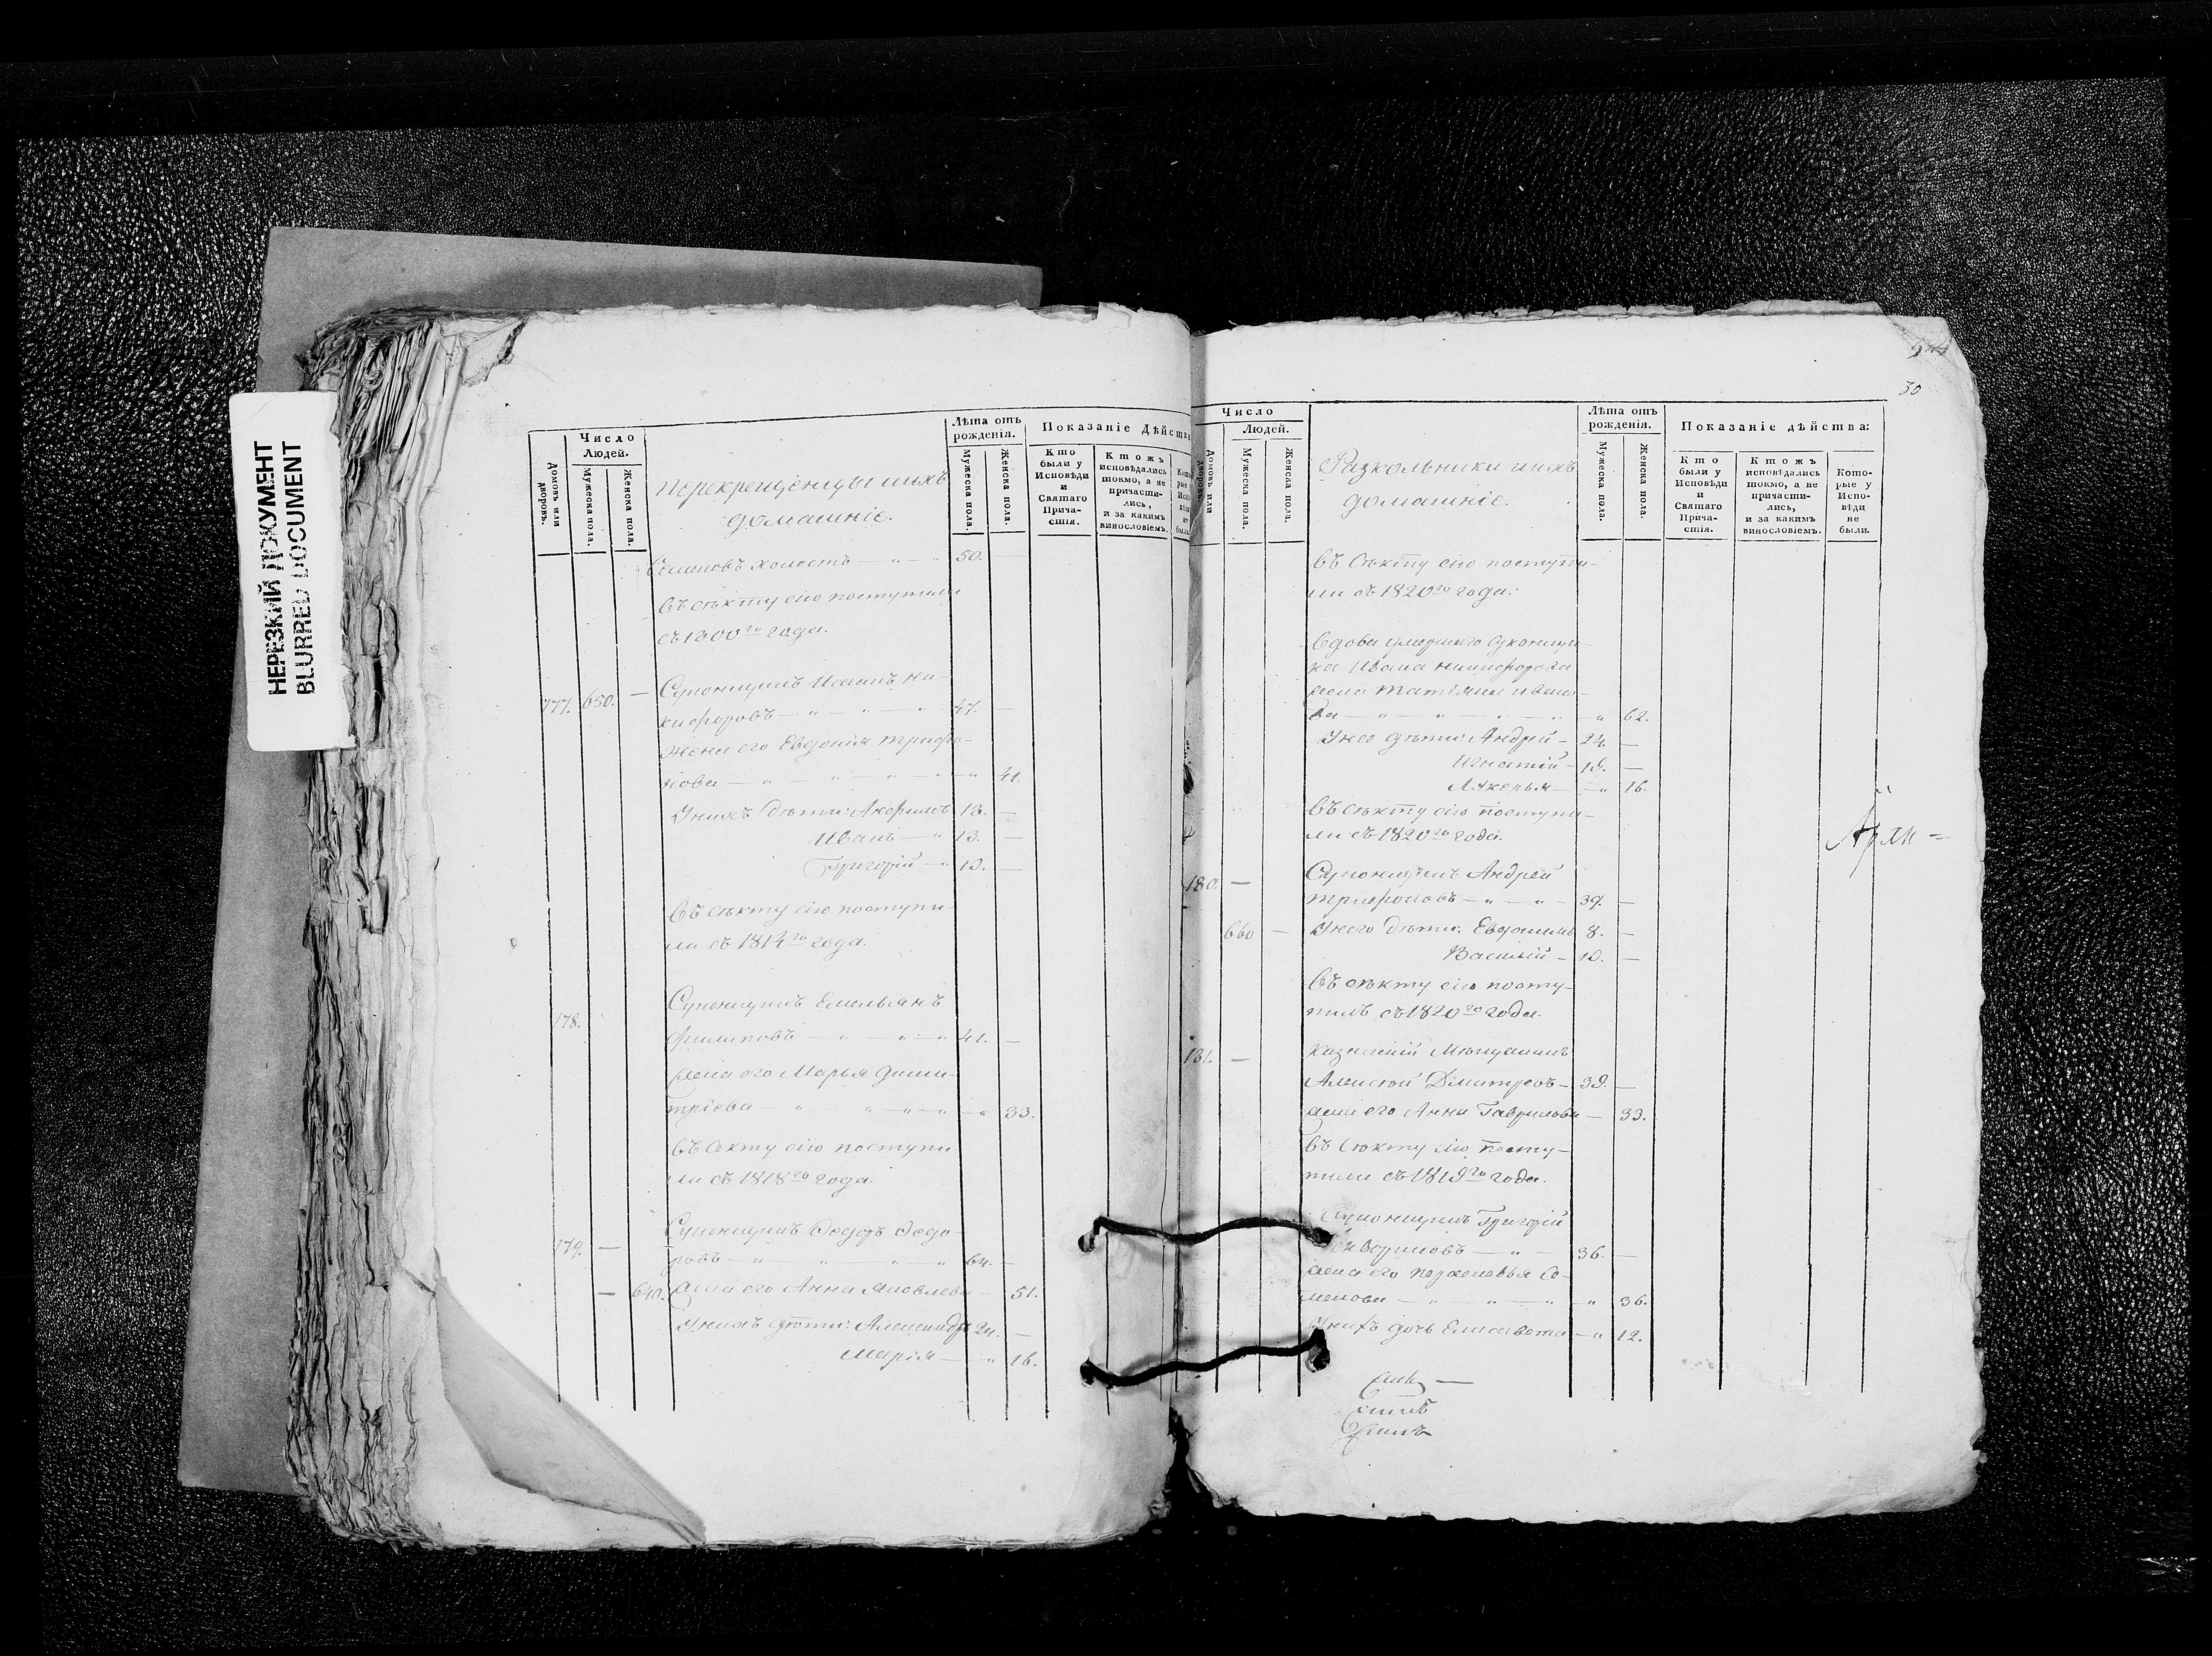 НЕРЕЗКИЙ ДОКУМЕНТ
BLURRED DOCUMENT
Домовъ или дворовъ.
Число
Людей.
Мужеска пола.
Женска пола.
перекрещенцы иихъ
домашніе.
Лѣта отъ
рожденія.
Мужеска пола.
Женска пола.
Показаніе Дѣйства
Кто
были у
Исповѣди
и
Святаго
Прича-
стія.
Ктожъ
исповѣдались
токмо, а не
причасти-
лись,
и за какимъ
винословіемъ.
Семеновъ холостъ — „ — 50. —
въ сѣкту сію поступили
съ 1800го года.
777. 650. — Суконщикъ Иванъ Ни-
кифоровъ — „ — „ — „ — 47. —
Жена его Евдокія Трифо-
нова — „ — „ — „ — „ 41.
Унихъ дѣти: 18. —
Иванъ — „ 13. —
Григорій — „ 10. —
въ сѣкту сію поступи-
ли съ 1814го года.
178. Суконщикъ Емельянъ
Филиповъ — „ — „ — „ 41. —
жена его Марья Дими-
тріева — „ „ — „ — „ 33.
въ секту сію поступи
ли съ 1818го года.
179. — Суконщикъ Ѳедоръ Ѳедо-
ровъ — „ — „ — „ — „ 64. —
— 640. жена его Анна Яковлева — 51.
Унихъ дѣти: Александръ 24. —
Марія — „ 16.
30
Домовъ или дворовъ.
Число
Людей.
Мужеска пола.
Женска пола.
Разкольники иихъ
домашніе.
Лѣта отъ
рожденія.
Мужеска пола.
Женска пола.
Показаніе дѣйства:
Кто
были у
Исповѣди
и
Святаго
Прича-
стія.
Ктожъ
исповѣдались
токмо, а не
причасти-
лись,
и за какимъ
винословіемъ.
Кото-
рые у
Испо-
вѣди
не
были.
въ сѣкту сію поступи-
ли съ 1820го года.
Вдова умершаго суконщи-
ка Ивана Никифорова
жена Татіяна Ивано-
ва — „ — „ — „ — „ — „ 62.
Унее дѣти: Андрей — 24. —
Игнатій — 19. —
Лукерья — „ 16.
въ сѣкту сію поступи-
ли съ 1820го года.
180. — Суконщикъ Андрей
Трифоновъ — „ — „ — 39. —
660 — Унего дѣти: Евдокимъ 8. —
Василій — 10. —
въ сѣкту сію посту-
пилъ съ 1820го года.
181. — Казанскій Мѣщанинъ
Алексѣй Дмитревъ — 39. —
жена его Анна Гаврилова — 33.
въ сѣкту сію посту-
пили съ 1819го года.
Суконщикъ Григорій
— „ — 36. —
жена его Се-
менова — „ — „ — „ — „ 36.
Унихъ дочь Елисавета — „ 12.